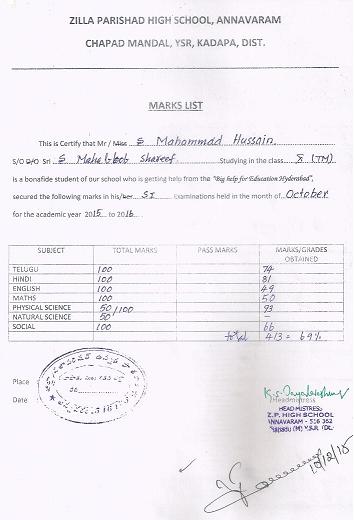 ZILLA PARISHAD HIGH SCHOOL, ANNAVARAM
CHAPAD MANDAL, YSR, KADAPA, DIST.
MARKS LIST
This is Certify that Mr / Miss S Mahammad Hussain
S/O D/O Sri S Mahabboob Shareef Studying in the class X (TM)
is a bonafide student of our school who is getting help from the "Big help for Education Hyderabad",
secured the following marks in his/her SI Examinations held in the month of October
for the academic year 2015 to 2016
SUBJECT TOTAL MARKS PASS MARKS MARKS/GRADES OBTAINED
TELUGU 100 74
HINDI 100 81
ENGLISH 100 49
MATHS 100 50
PHYSICAL SCIENCE 50/100 93
NATURAL SCIENCE 50 –
SOCIAL 100 66
total 413 = 69%
Place
Date:
Headmistress
HEAD MISTRESS
Z.P. HIGH SCHOOL
ANNAVARAM - 516 362